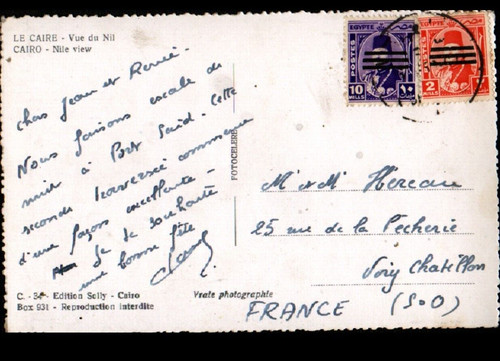 LE CAIRE - Vue du Nil
CAIRO - Nile view
Chers Jean et Renée.
Nous faisons escale de
nuit à Port Saïd. Cette
seconde traversée commence
d'une façon excellente.
Je te souhaite
une bonne fête
C. - 34 - Edition Selly - Cairo
Box 931 - Reproduction interdite
FOTOCELERE
Vraie photographie
EGYPTE
POSTES
10
MILLS
١٠
EGYPTE
POSTES
2
MILLS
M et Mme Hereau
25 rue de la Pêcherie
Viry Chatillon
FRANCE (S&O)